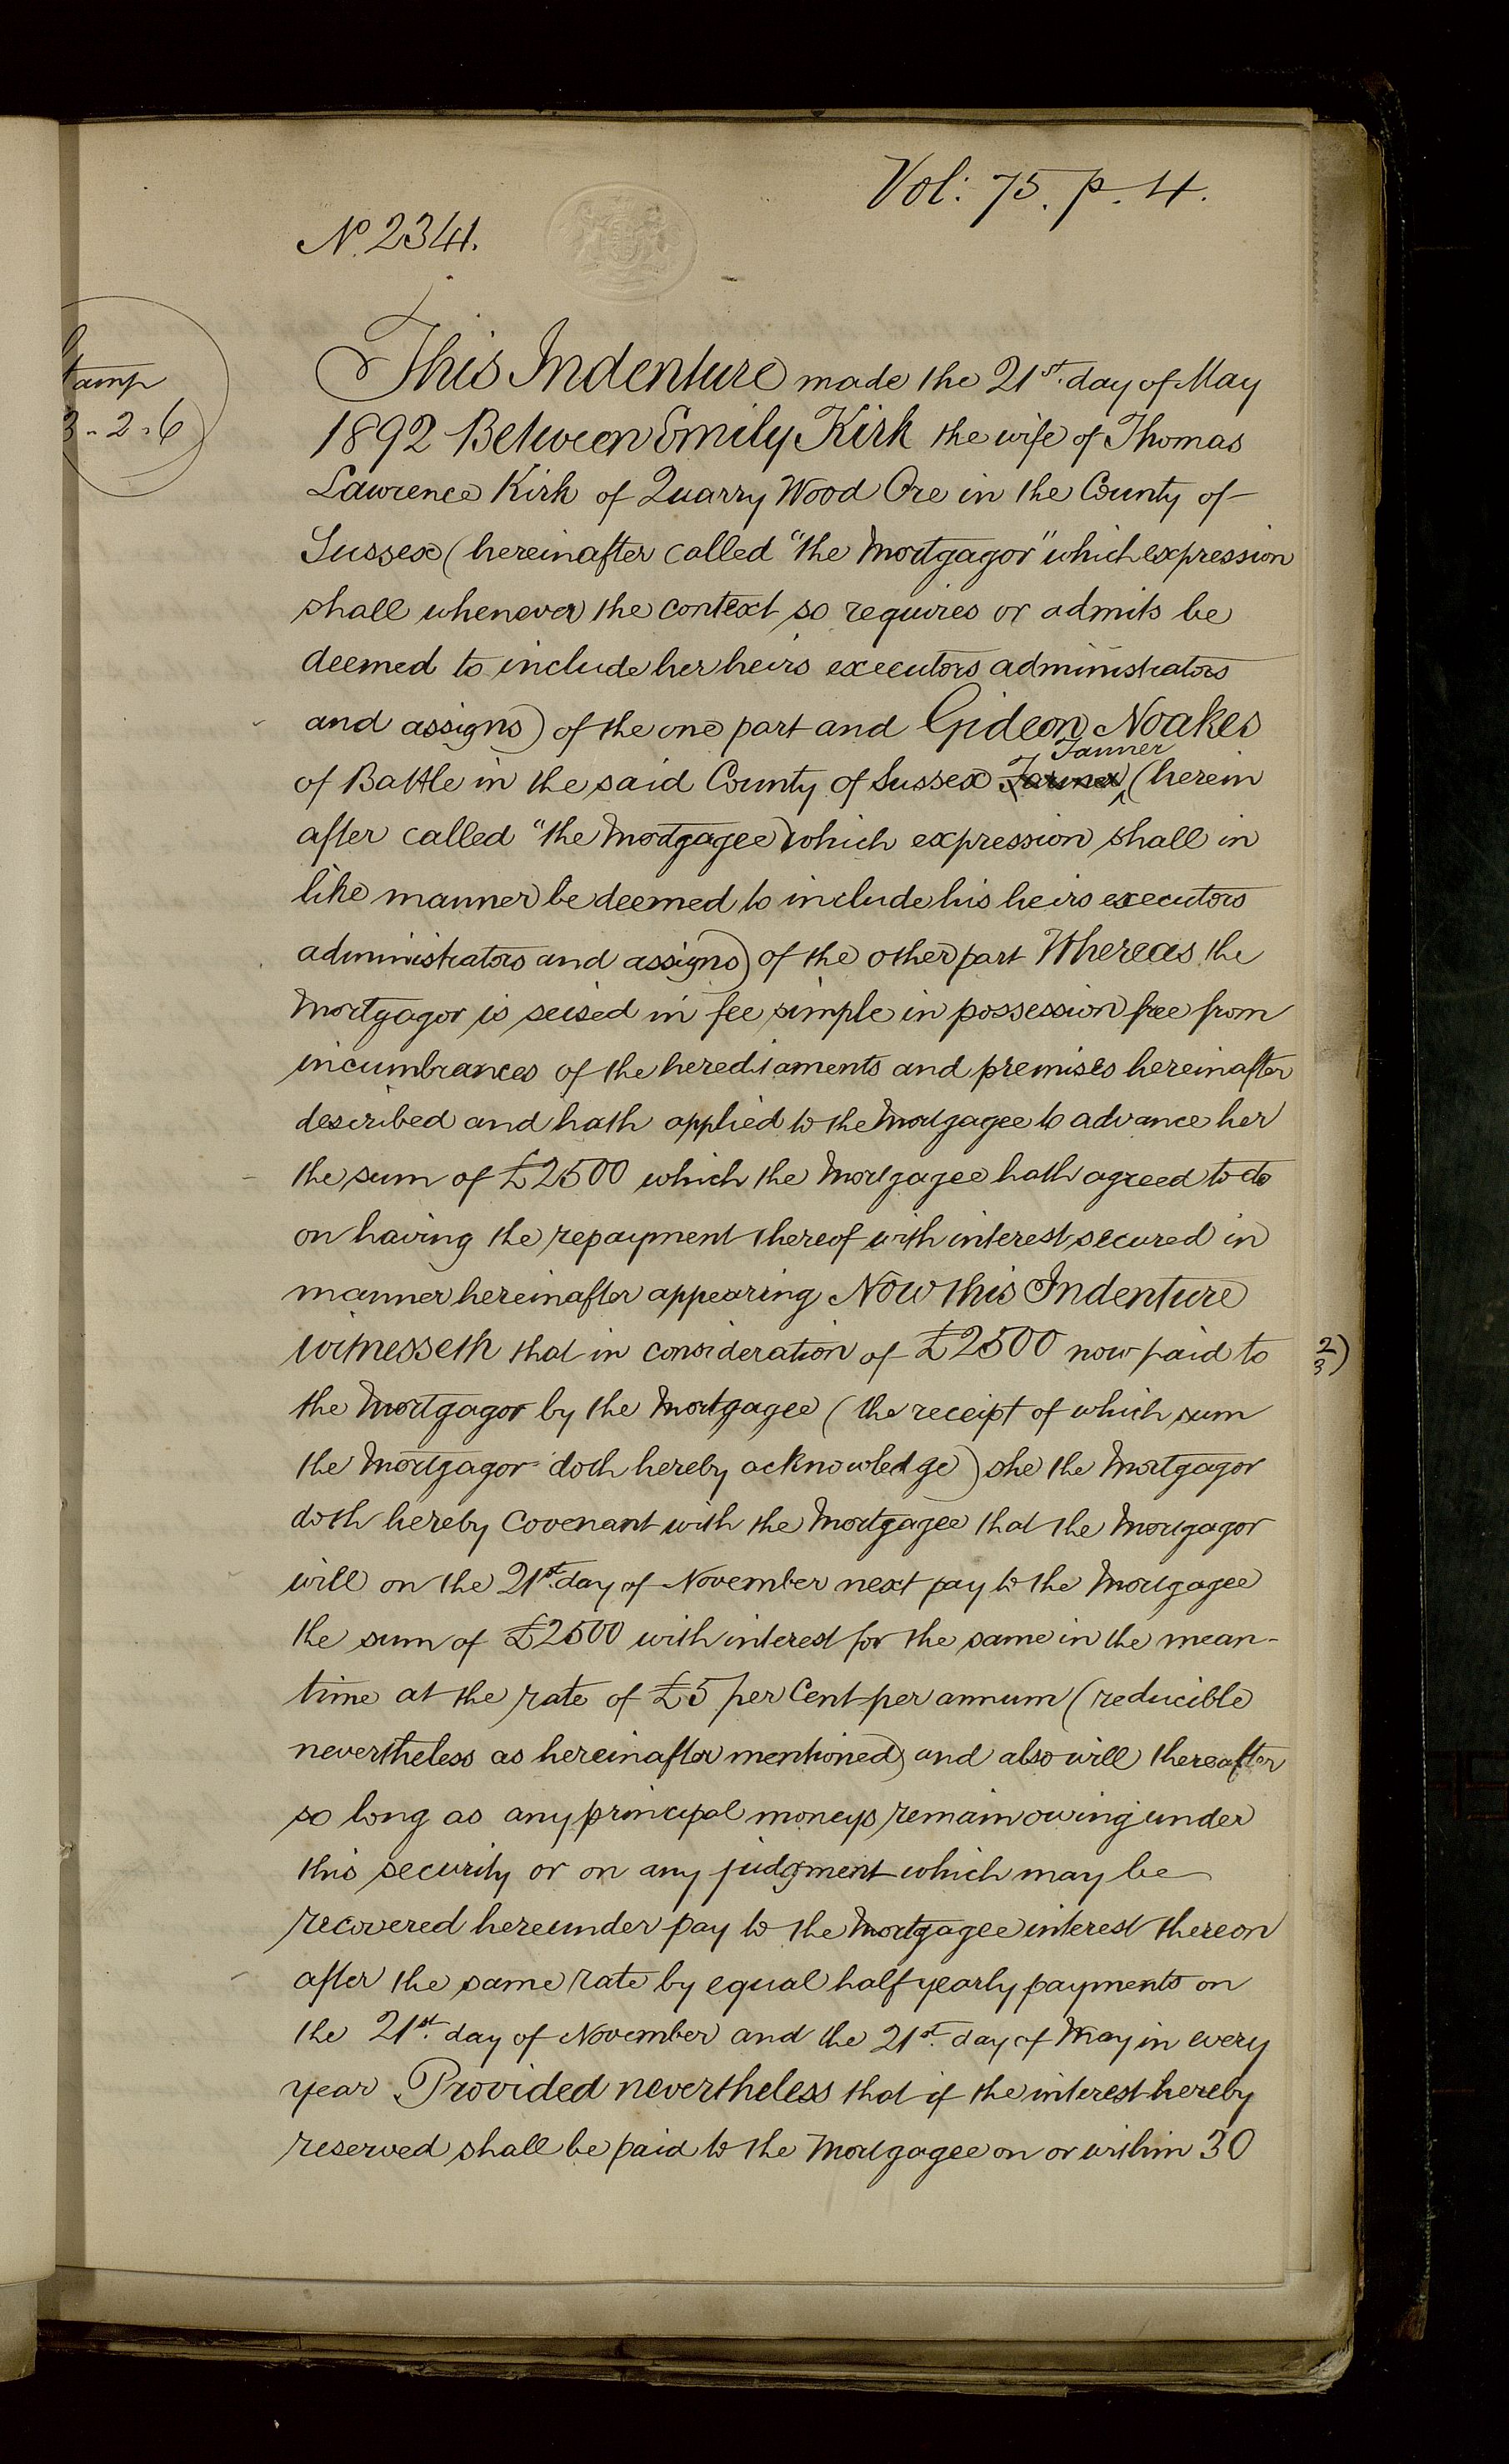 Vol: 75. p. 4.
No. 2341.
tamp
3-2-6
This Indenture made the 21st. day of May
1892 Between Emily Kirk the wife of Thomas
Lawrence Kirk of Quarry Wood Ore in the County of
Sussex (hereinafter called "the Mortgagor" which expression
shall whenever the context so requires or admits be
deemed to include her heirs executors administrators
and assigns) of the one part and Gideon Noakes
Tanner
of Battle in the said County of Sussex Farmer (herein
after called "the Mortgagee) which expression shall in
like manner be deemed to include his heirs executors
administrators and assigns) of the other part Whereas the
Mortgagor is seised in fee simple in possession free from
incumbrances of the herediaments and premises hereinafter
described and hath applied to the Mortgagee to advance her
the sum of £2500 which the Mortgagee hath agreed to do
on having the repayment thereof with interest secured in
manner hereinafter appearing Now this Indenture
witnesseth that in consideration of £2500 now paid to
2
3)
the Mortgagor by the Mortgagee (the receipt of which sum
the Mortgagor doth hereby acknowledge) she the Mortgagor
doth hereby covenant with the Mortgagee that the Mortgagor
will on the 21st. day of November next pay to the Mortgagee
the sum of £2500 with interest for the same in the mean-
time at the rate of £5 per Cent per annum (reducible
nevertheless as hereinafter mentioned) and also will thereafter
so long as any principal moneys remain owing under
this security or on any judgment which may be
recovered hereunder pay to the Mortgagee interest thereon
after the same rate by equal half yearly payments on
the 21st. day of November and the 21st. day of May in every
year Provided nevertheless that if the interest hereby
reserved shall be paid to the Mortgagee on or within 30